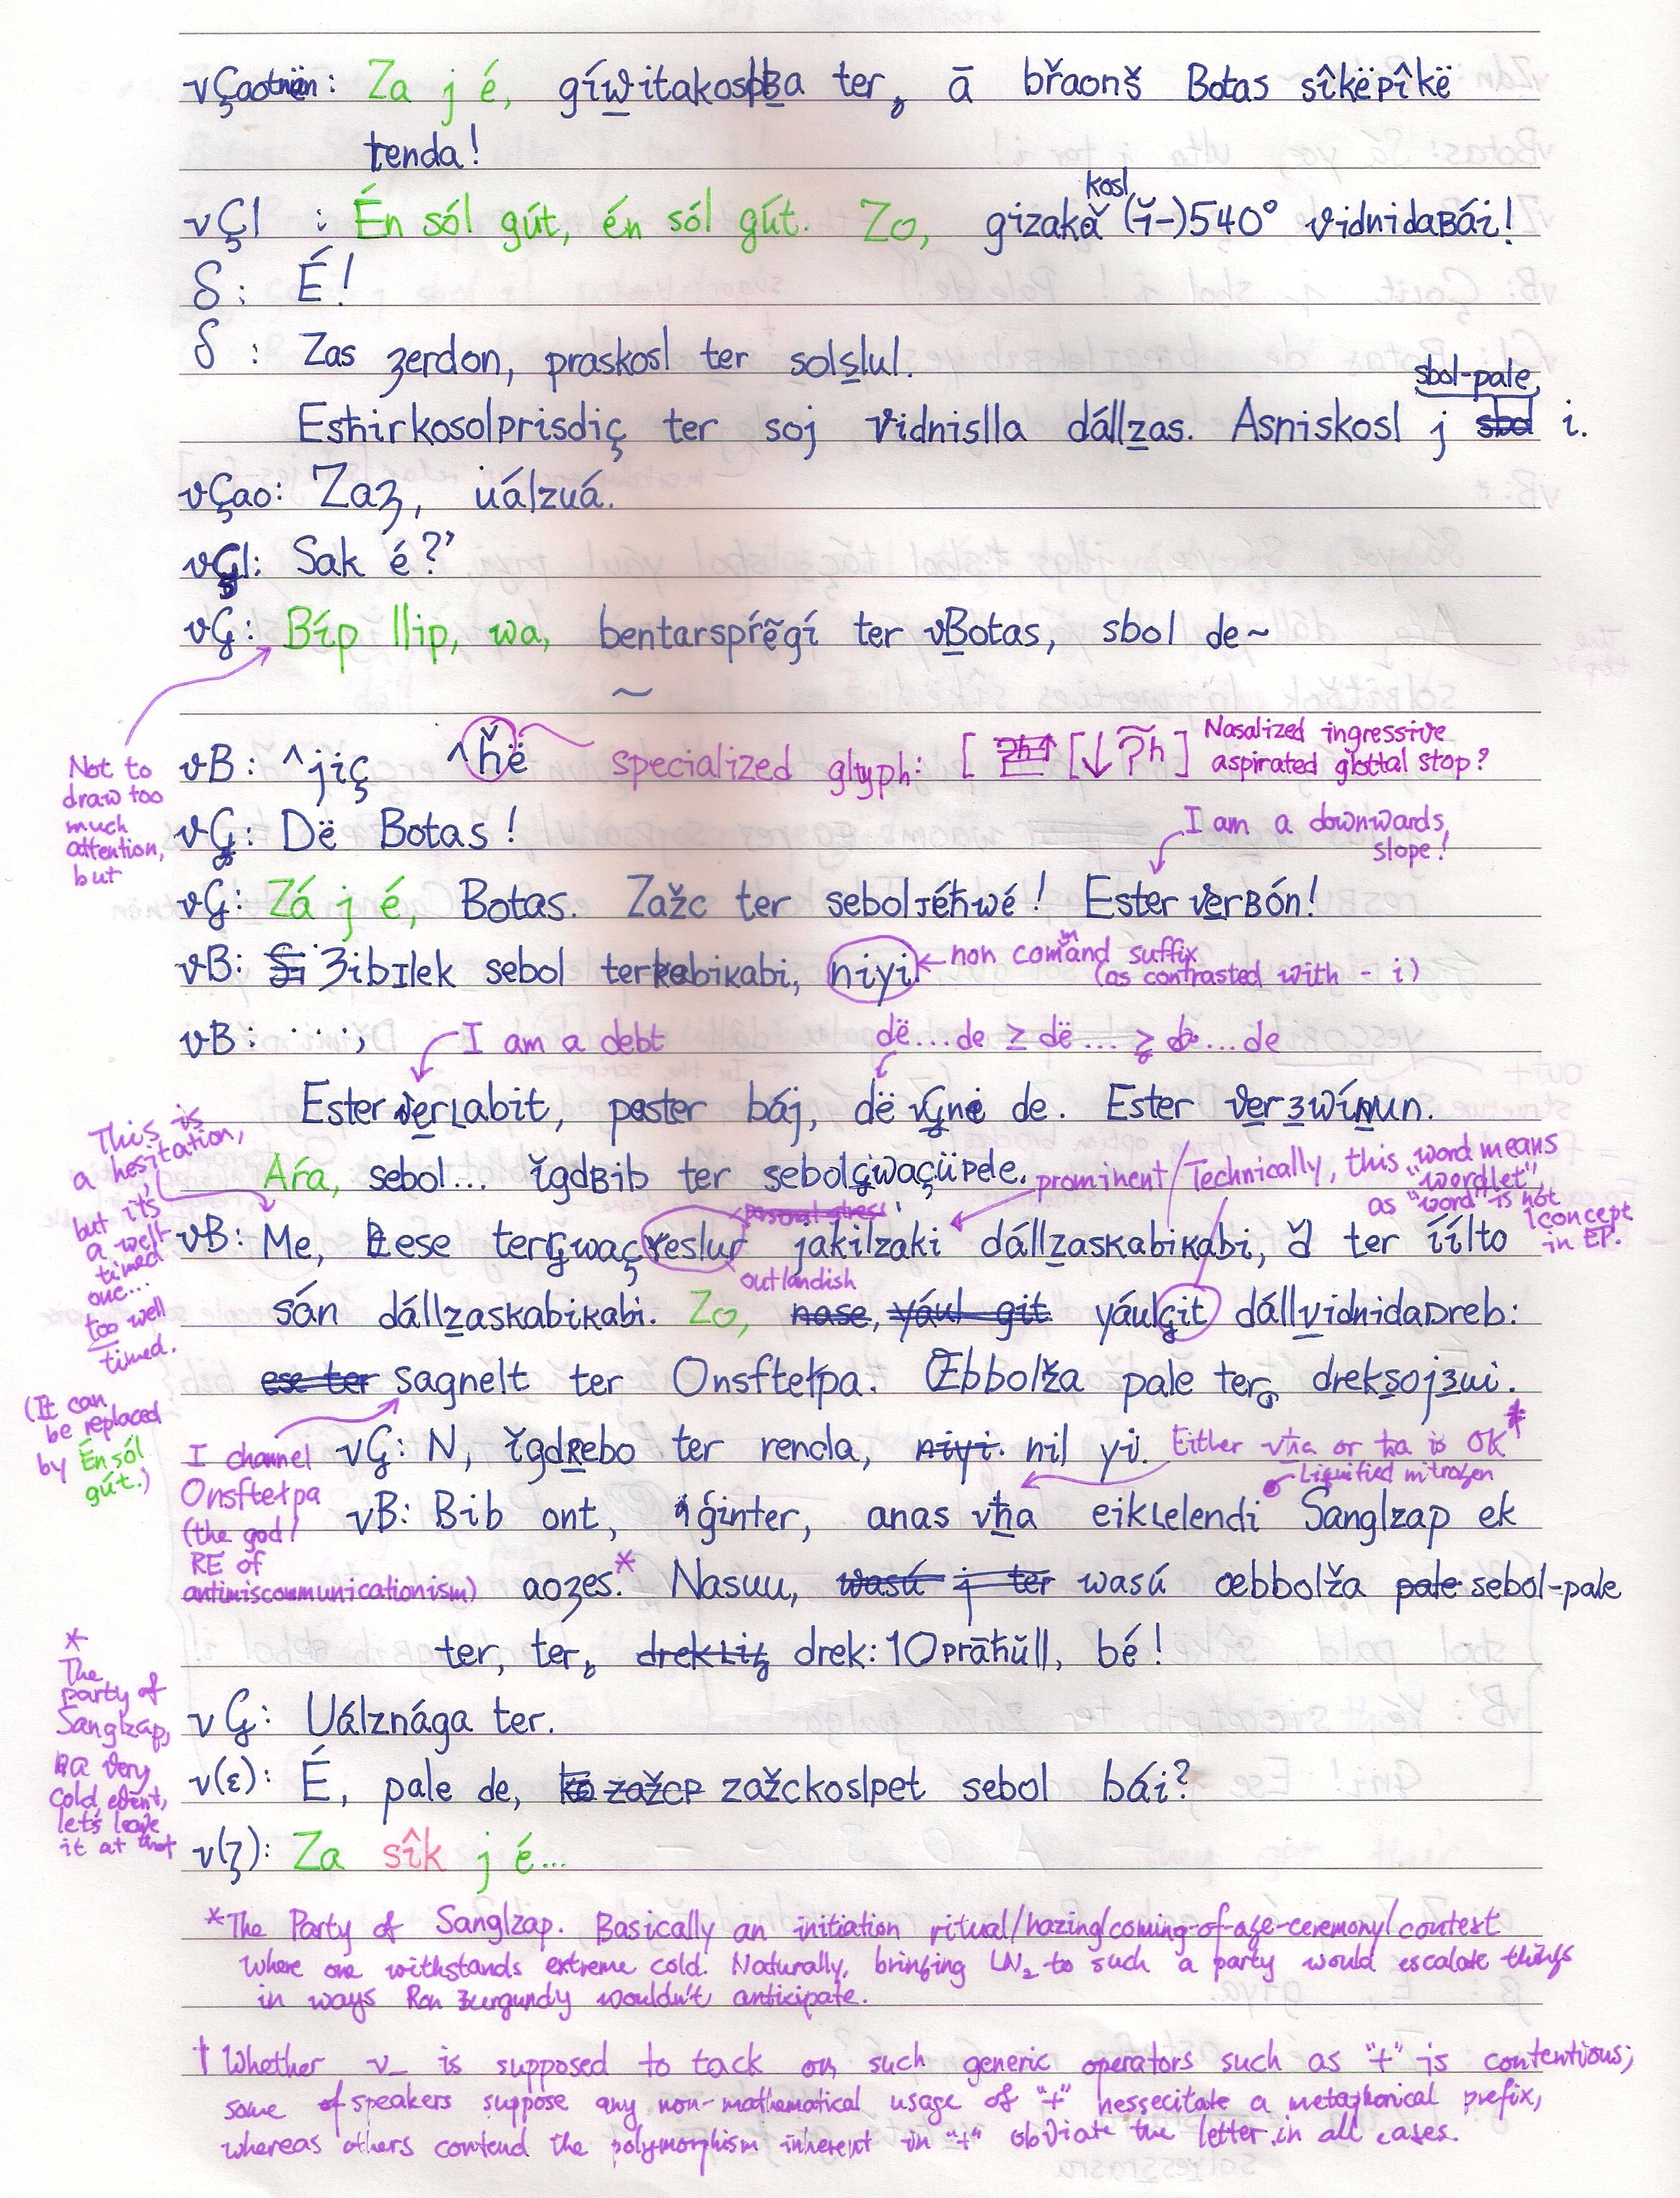 vÇaotnën: Za j é, gíwitakospba ter, ā břaonš Botas sîkëpîkë
tenda!
kosl
vÇl : Én sól gút, én sól gút. Zo, gizakǎ (ǐ-)540° vidnidaBái!
δ: É!
δ: Zas ʒerdon, praskosl ter solslul.
sbol-pale,
Esħirkosolprisdiç ter soj vidnislla dállzas. Asniskosl j sbol i.
vÇao: Zaʒ, uálzuá.
vÇl: Sak é?’
vG: Bíp llip, wa, bentarspŕẽgí ter vBotas, sbol de~
~
vB: ^jiç ^ȟë specialized glyph: [↓ʔ̃ʰ] Nasalized ingressive
aspirated glottal stop?
Not to
draw too
much
attention,
but
vG: Dë Botas!
I am a downwards
slope!
vG: Zá j é, Botas. Zažc ter seboljéħwé! Ester verBón!
vB: ʒibIlek sebol terkabikabi, niyi. non command suffix
(as contrasted with -i)
vB: ...; I am a debt dë...de ≥ dë... ≥ de...de
Ester verLabit, paster báj, dë vGne de. Ester verʒwínun.
This is
a hesitation,
but it's
a well
timed
one...
too well
timed.
(It can
be replaced
by Én sól
gút.)
Aŕa, sebol... ǐgdBib ter sebolçwaçüpele. prominent / Technically, this word means
"wordlet",
as "word" is not
1 concept
in EP.
personal stress
vB: Me, ese terGwaçreslur jakilzaki dállzaskabikabi, ǎ ter íílto
outlandish
sán dállzaskabikabi. Zo, nase, yául git yáulgit dállvidnidaDreb:
ese ter sagnelt ter Onsftełpa. Œbbolža pale ter, dreksojʒui.
I channel
Onsftełpa
(the god/
RE of
antimiscommunicationism)
vG: N, ǐgdRebo ter rencla, niyi. nil yi. Either vħa or ħa is OK
Liquified nitrogen
vB: Bib ont, ǵinter, anas vħa eikLelendi Sanglzap ek
aoʒes.* Nasuu, wasú j ter wasú œbbolža pale sebol-pale
ter, ter, drek drek: 10prāħŭll, bé!
*
The
party of
Sanglzap,
a very
cold event,
let's leave
it at that
vG: Uálznága ter.
v(ε): É, pale de, zažcp zažckoslpet sebol bái?
v(ζ): Za sîk j é...
*The Party of Sanglzap. Basically an initiation ritual/hazing/coming-of-age-ceremony/contest
where one withstands extreme cold. Naturally, bringing LN₂ to such a party would escalate things
in ways Ron Burgundy wouldn't anticipate.
† Whether v_ is supposed to tack on such generic operators such as "+" is contentious;
some of speakers suppose any non-mathematical usage of "+" nessecitate a metaphorical prefix,
whereas others contend the polymorphism inherent in "+" obviate the letter in all cases.